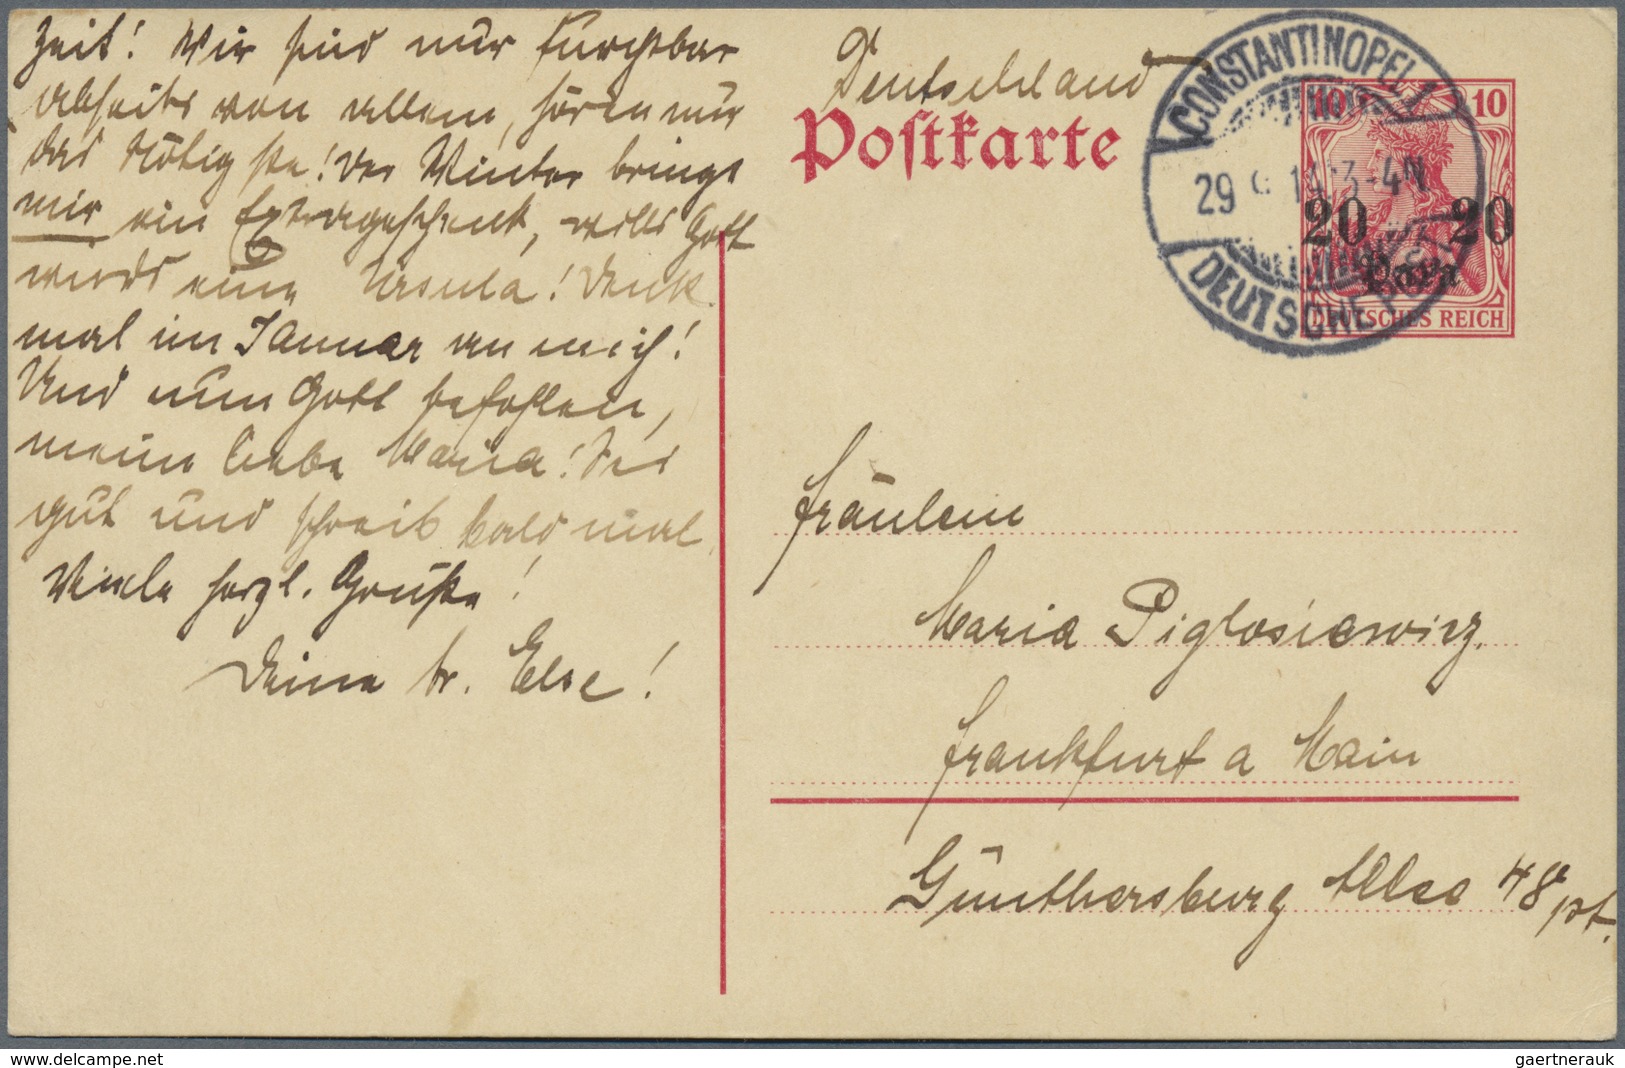 Zeit! Wir sind nur furchtbar
abseits von allem, hören nur
das Nötigste! Der Winter bringt
mir ein Extrageschenk, wills Gott
wirds eine Ursula! Denk
mal im Januar an mich!
Und nun Gott befohlen,
meine liebe Maria! Sei
gut und schreib bald mal
Viele herzl. Grüße!
Deine tr. Else!
Deutschland
Postkarte
CONSTANTINOPEL 1
29 9 14 3-4N
DEUTSCHE POST
10 10
20 20
Para
DEUTSCHES REICH
Fräulein
Maria Piglosiewicz.
Frankfurt a Main
Günthersburg Allee 48 pt.
delcampe.net
gaertnerauk